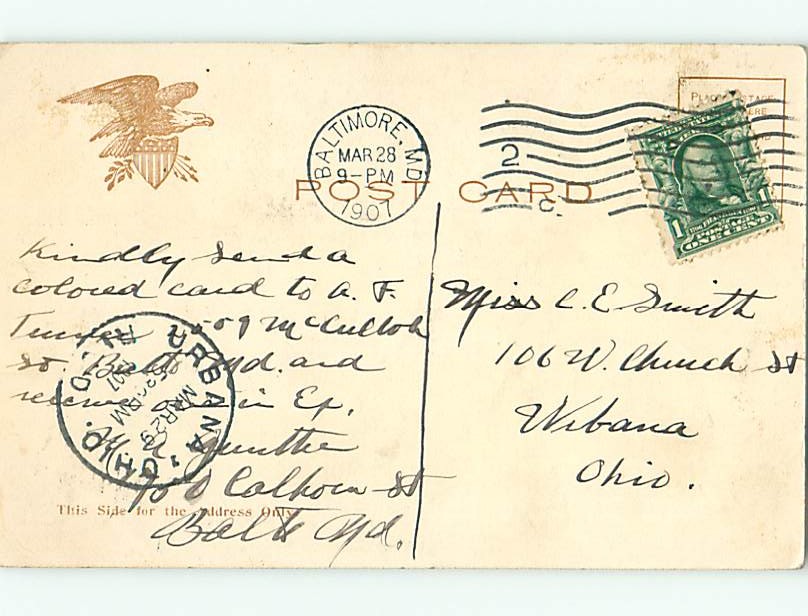 PLACE POSTAGE
HERE
BALTIMORE, MD.
MAR 28
9-PM
1907
2
C.
POST CARD
1 1
ONE CENT
Kindly send a
colored card to A. F.
McCulloh
St. Balto Md. and
receive one in Ex.
Gunther
Calhoun St
Balto Md.
Miss C. E. Smith
106 W. Church St
Urbana
Ohio.
URBANA, OHIO.
MAR 29
PM
1907
REC'D
This Side for the Address Only